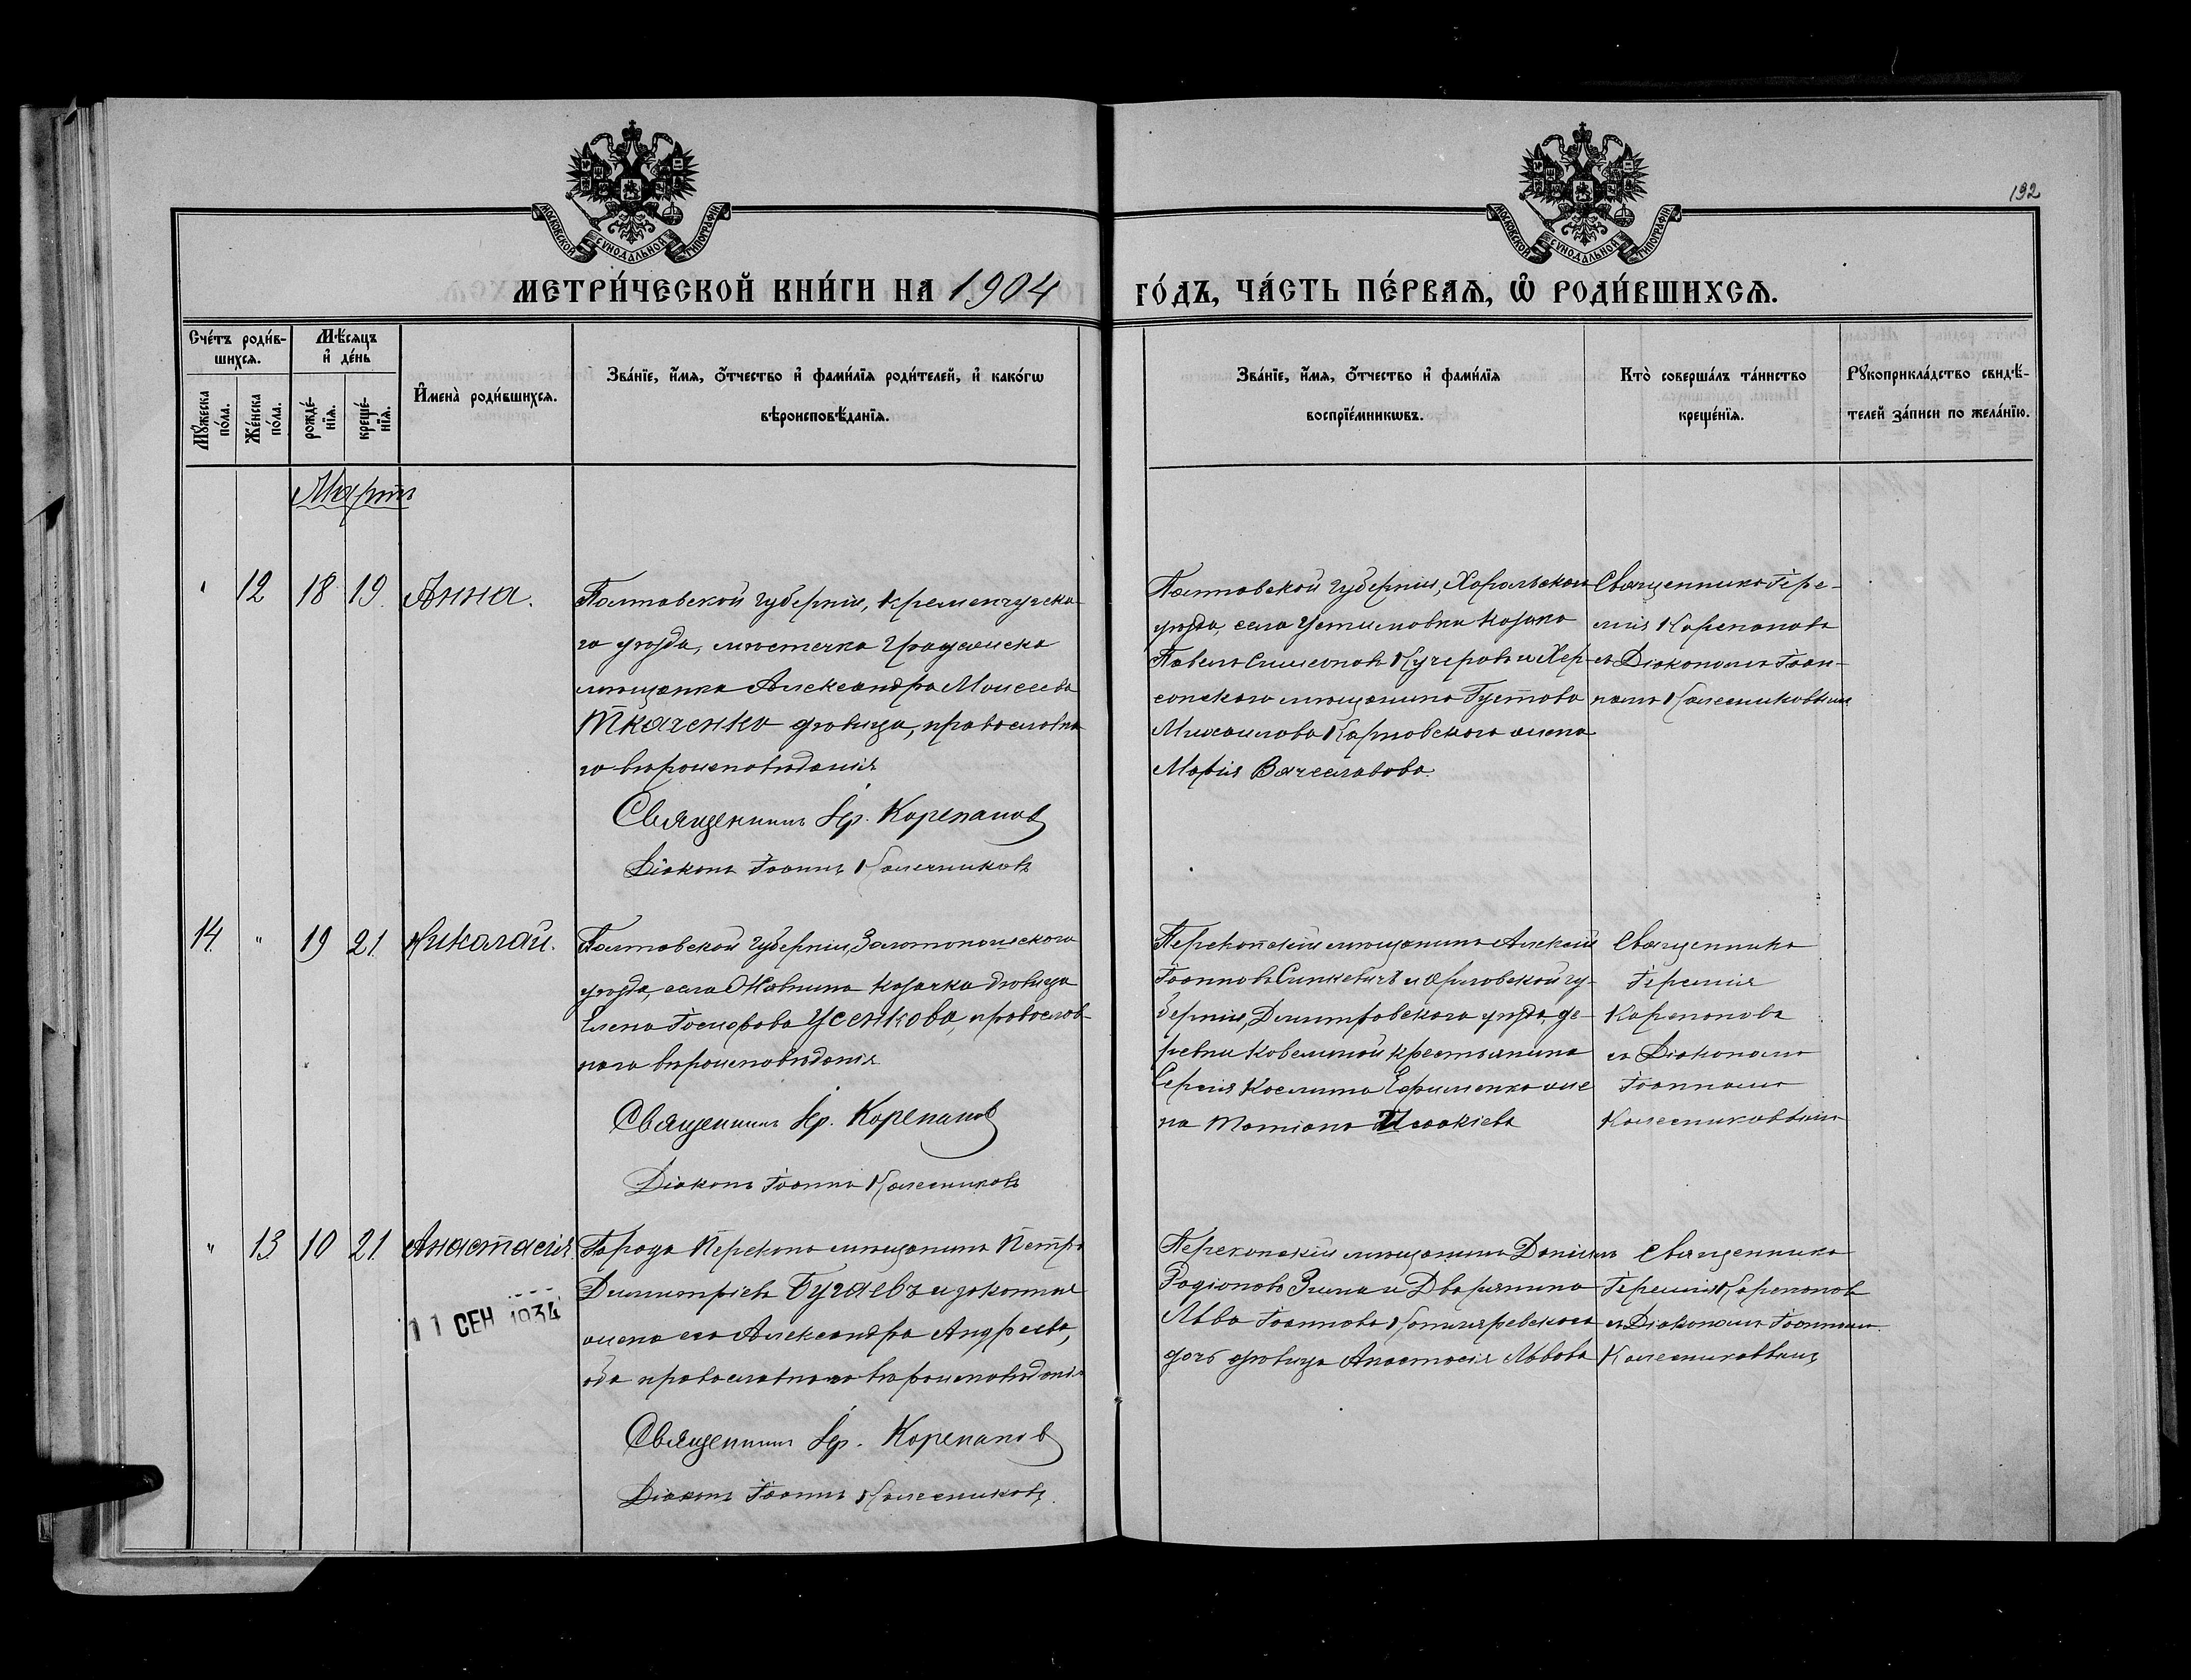 192
МОСКОВСКОЙ СѴНОДАЛЬНОЙ ТИПОГРАФІИ
МОСКОВСКОЙ СѴНОДАЛЬНОЙ ТИПОГРАФІИ
МЕТРИ́ЧЕСКОЙ КНИ́ГИ НА 1904 ГО́ДЪ, ЧА́СТЬ ПЕ́РВАѦ, Ѽ РОДИ́ВШИХСѦ.
Сче́тъ роди́в-
шихсѧ.
Мѣ́сѧцъ
и҆ де́нь
Мꙋ́жеска по́ла.
Же́нска по́ла.
рожде́-
нїѧ.
креще́-
нїѧ.
И҆мена̀ роди́вшихсѧ.
Зва́нїе, и҆́мѧ, ѻ҆́тчество и҆ фами́лїѧ роди́телей, и҆ како́гѡ
вѣроисповѣ́данїѧ.
Зва́нїе, и҆́мѧ, ѻ҆́тчество и҆ фами́лїѧ
воспрїе́мникѡвъ.
Кто̀ соверша́лъ та́инство
креще́нїѧ.
Рꙋкоприкла́дство свидѣ́-
телей за́писи по жела́нїю.
Мартъ
" 12 18 19 Анна.
Полтавской губерніи, Кременчугска-
го уѣзда, мѣстечка Градижска
мѣщанка Александра Моисеева
Ткаченко дѣвица, православна-
го вѣроисповѣданія
Священникъ Іер. Корепанов
Діаконъ Іоаннъ Колесниковъ
Полтавской губерніи, Хорольскаго
уѣзда, села Устимовки козакъ
Павелъ Симеоновъ Кучеровъ и Хер-
сонскаго мѣщанина Густава
Михаилова Карповскаго жена
Марія Вячеславова.
Священникъ Іере-
мія Корепановъ
съ Діакономъ Іоан-
номъ Колесниковымъ
14 " 19 21 Николай.
Полтавской губерніи, Золотоношскаго
уѣзда, села козачка дѣвица
Елена Іосифова Усенкова, православ-
наго вѣроисповѣданія
Священникъ Іер. Корепанов
Діаконъ Іоаннъ Колесниковъ
Перекопскій мѣщанинъ Алексій
Іоанновъ Синкевичъ и Орловской гу-
берніи, Дмитровскаго уѣзда, де-
ревни крестьянина
Сергія Ефименко же-
на Татіана Исаакіева
Священникъ
Іеремія
Корепановъ
съ Діакономъ
Іоанномъ
Колесниковымъ
" 13 10 21 Анастасія.
11 СЕН 1934
Города Перекопа мѣщанинъ Петръ
Димитріевъ Бугаевъ и законная
жена его Александра Андреева,
оба православнаго вѣроисповѣданія
Священникъ Іер. Корепанов
Діаконъ Іоаннъ Колесниковъ.
Перекопскій мѣщанинъ Даніилъ
Родіоновъ Зима и Дворянина
Льва Іоаннова Котляревскаго
дочь дѣвица Анастасія Львова
Священникъ
Іеремія Корепановъ
съ Діакономъ Іоанномъ
Колесниковымъ